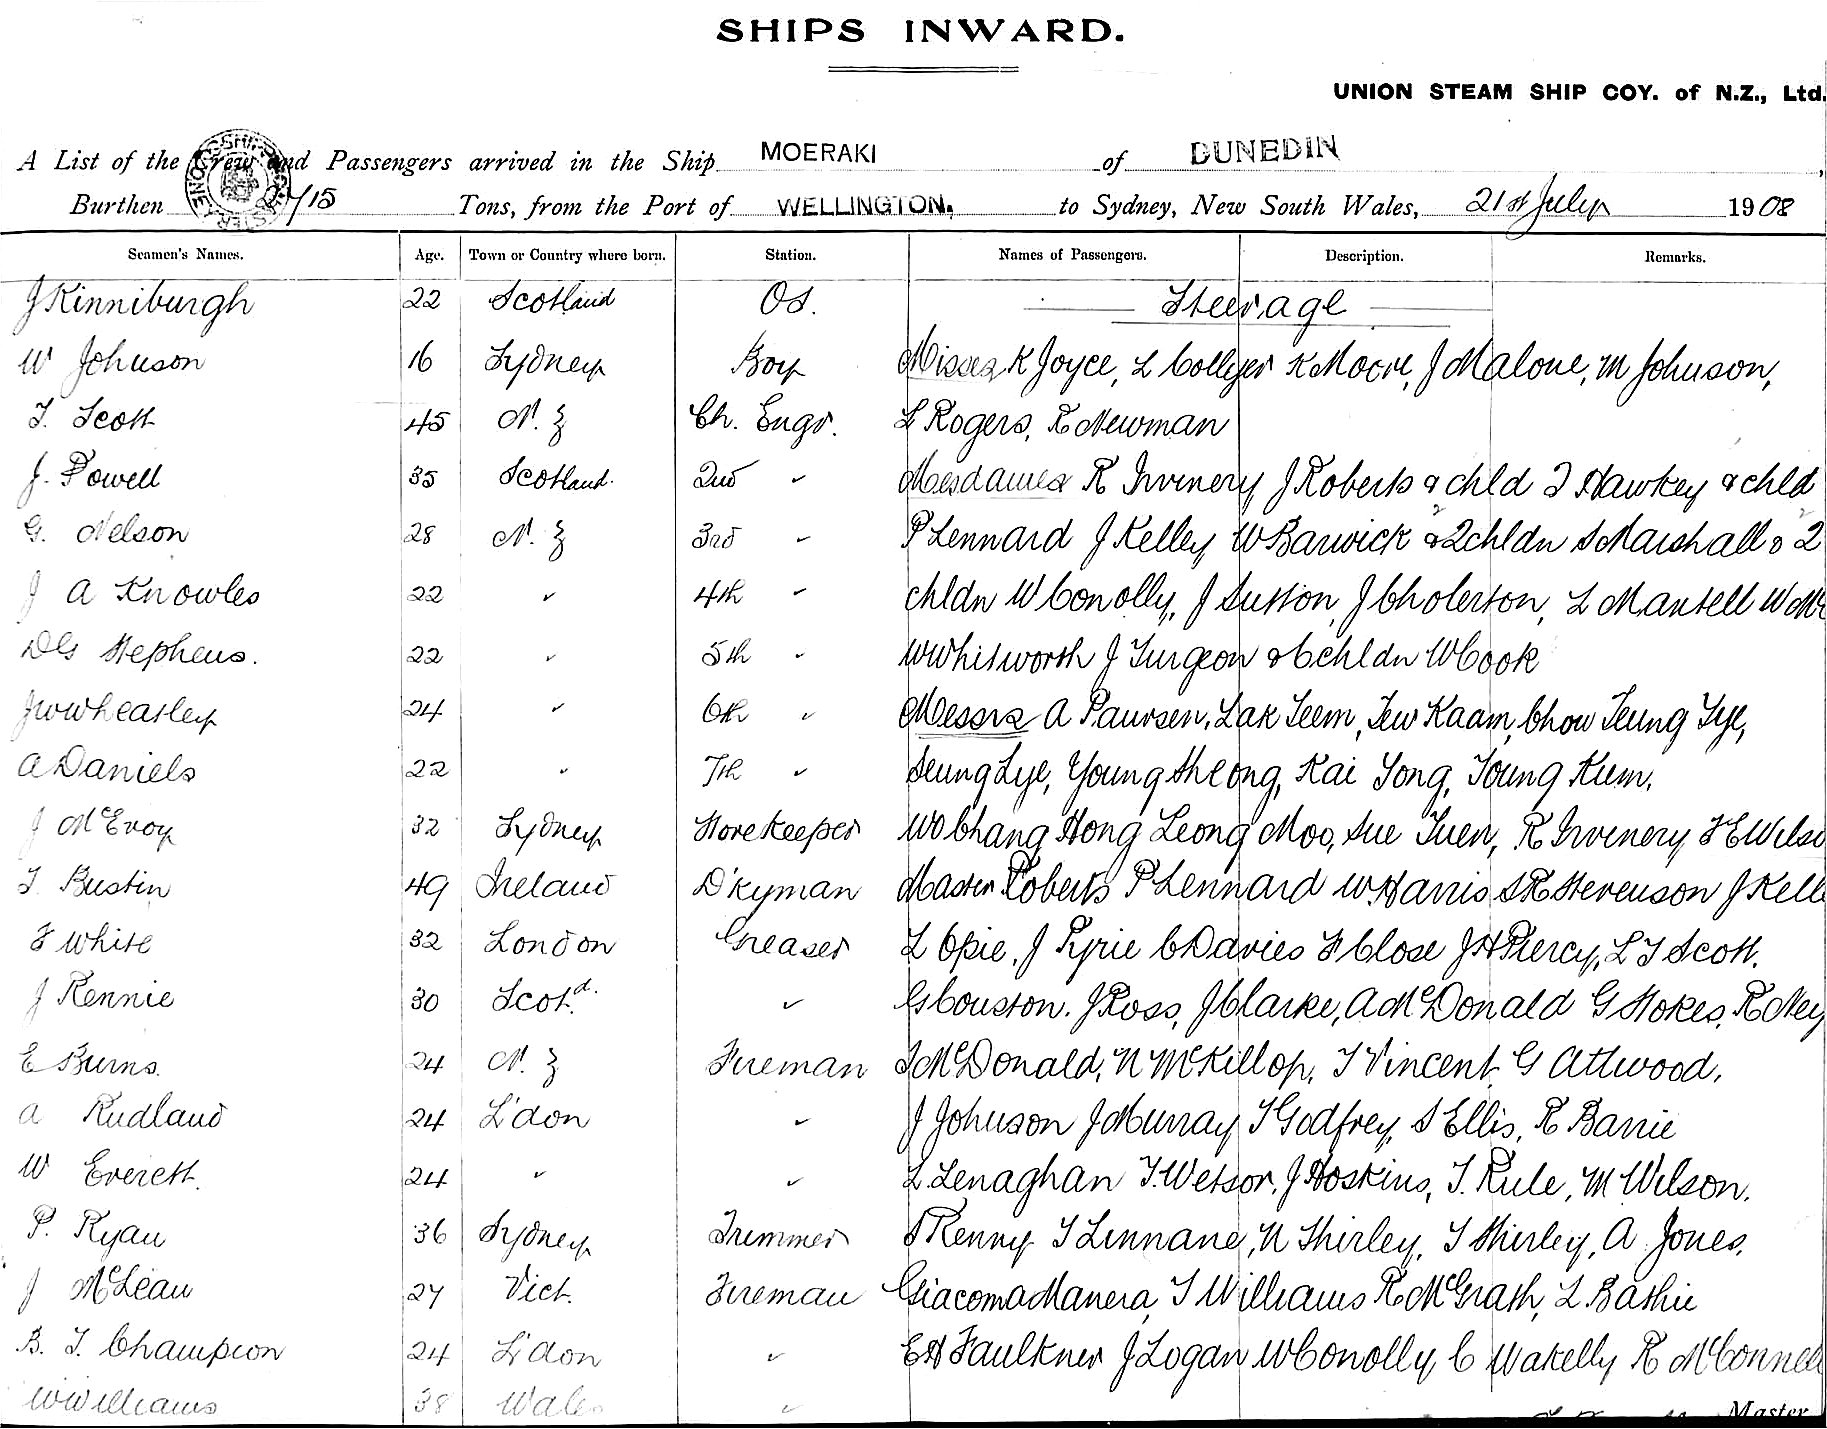 SHIPS INWARD.
UNION STEAM SHIP COY. of N.Z., Ltd.
A List of the Crew and Passengers arrived in the Ship MOERAKI of DUNEDIN,
Burthen /15 Tons, from the Port of WELLINGTON. to Sydney, New South Wales, 21st July 1908
Seamen's Names. Age. Town or Country where born. Station. Names of Passengers. Description. Remarks.
J Kinniburgh 22 Scotland OS. Steerage
W Johnson 16 Sydney Boy Misses K Joyce, L Collyer K Moore, J Malone, M Johnson,
T. Scott 45 N. Z Ch. Engr. L Rogers, R Newman
J. Powell 35 Scotland. 2nd " Mesdames R Irvenery J Roberts & chld T Hawkey & chld
G. Nelson 28 N. Z 3rd " P Lennard J Kelley W Barwick & 2 chldn S Marshall & 2
J A Knowles 22 " 4th " chldn W Conolly, J Sutton, J Cholerton, L Mantell W
D G Stephens. 22 " 5th " W Whitworth J Turgeon & 6 chldn W Cook
J W Wheatley 24 " 6th " Messrs A Paursen, Lak Teem, Tew Kaam, Chow Teung Tye,
A Daniels 22 " 7th " Seung Lye, Young Sheong, Kai Yong, Young Kum,
J McEvoy 32 Sydney Storekeeper Wo Chang Hong Leong Moo, Sue Tuen, R Irvenery F E Wilso
T. Bustin 49 Ireland D'kyman Master Roberts P Lennard W Harris S R Stevenson J Kell
F White 32 London Greaser L Opie, J Pyrie C Davies F Close J H Piercy, L T Scott.
J Rennie 30 Scot.d. " G Couston. J Ross, J Clarke, A McDonald G Stokes, R Ney
E Burns. 24 N. Z Fireman J McDonald, N McKillop, T Vincent G Attwood,
A Rudland 24 L'don " J Johnson J Murray T Godfrey, S Ellis, R Barrie
W Everett. 24 " " L Lenaghan T. Wetsor, J Hoskins, T. Rule, M Wilson.
P. Ryan 36 Sydney Trimmer S Kenny T Linnane, N Shirley, T Shirley, A Jones,
J McLean 27 Vict. Fireman Giacomo Manera, T Williams R McGrath, L Bathie
B. T. Champion 24 L'don " E H Faulkner J Logan W Conolly C Wakelly R McConnell
W Williams 38 Wales "
Master